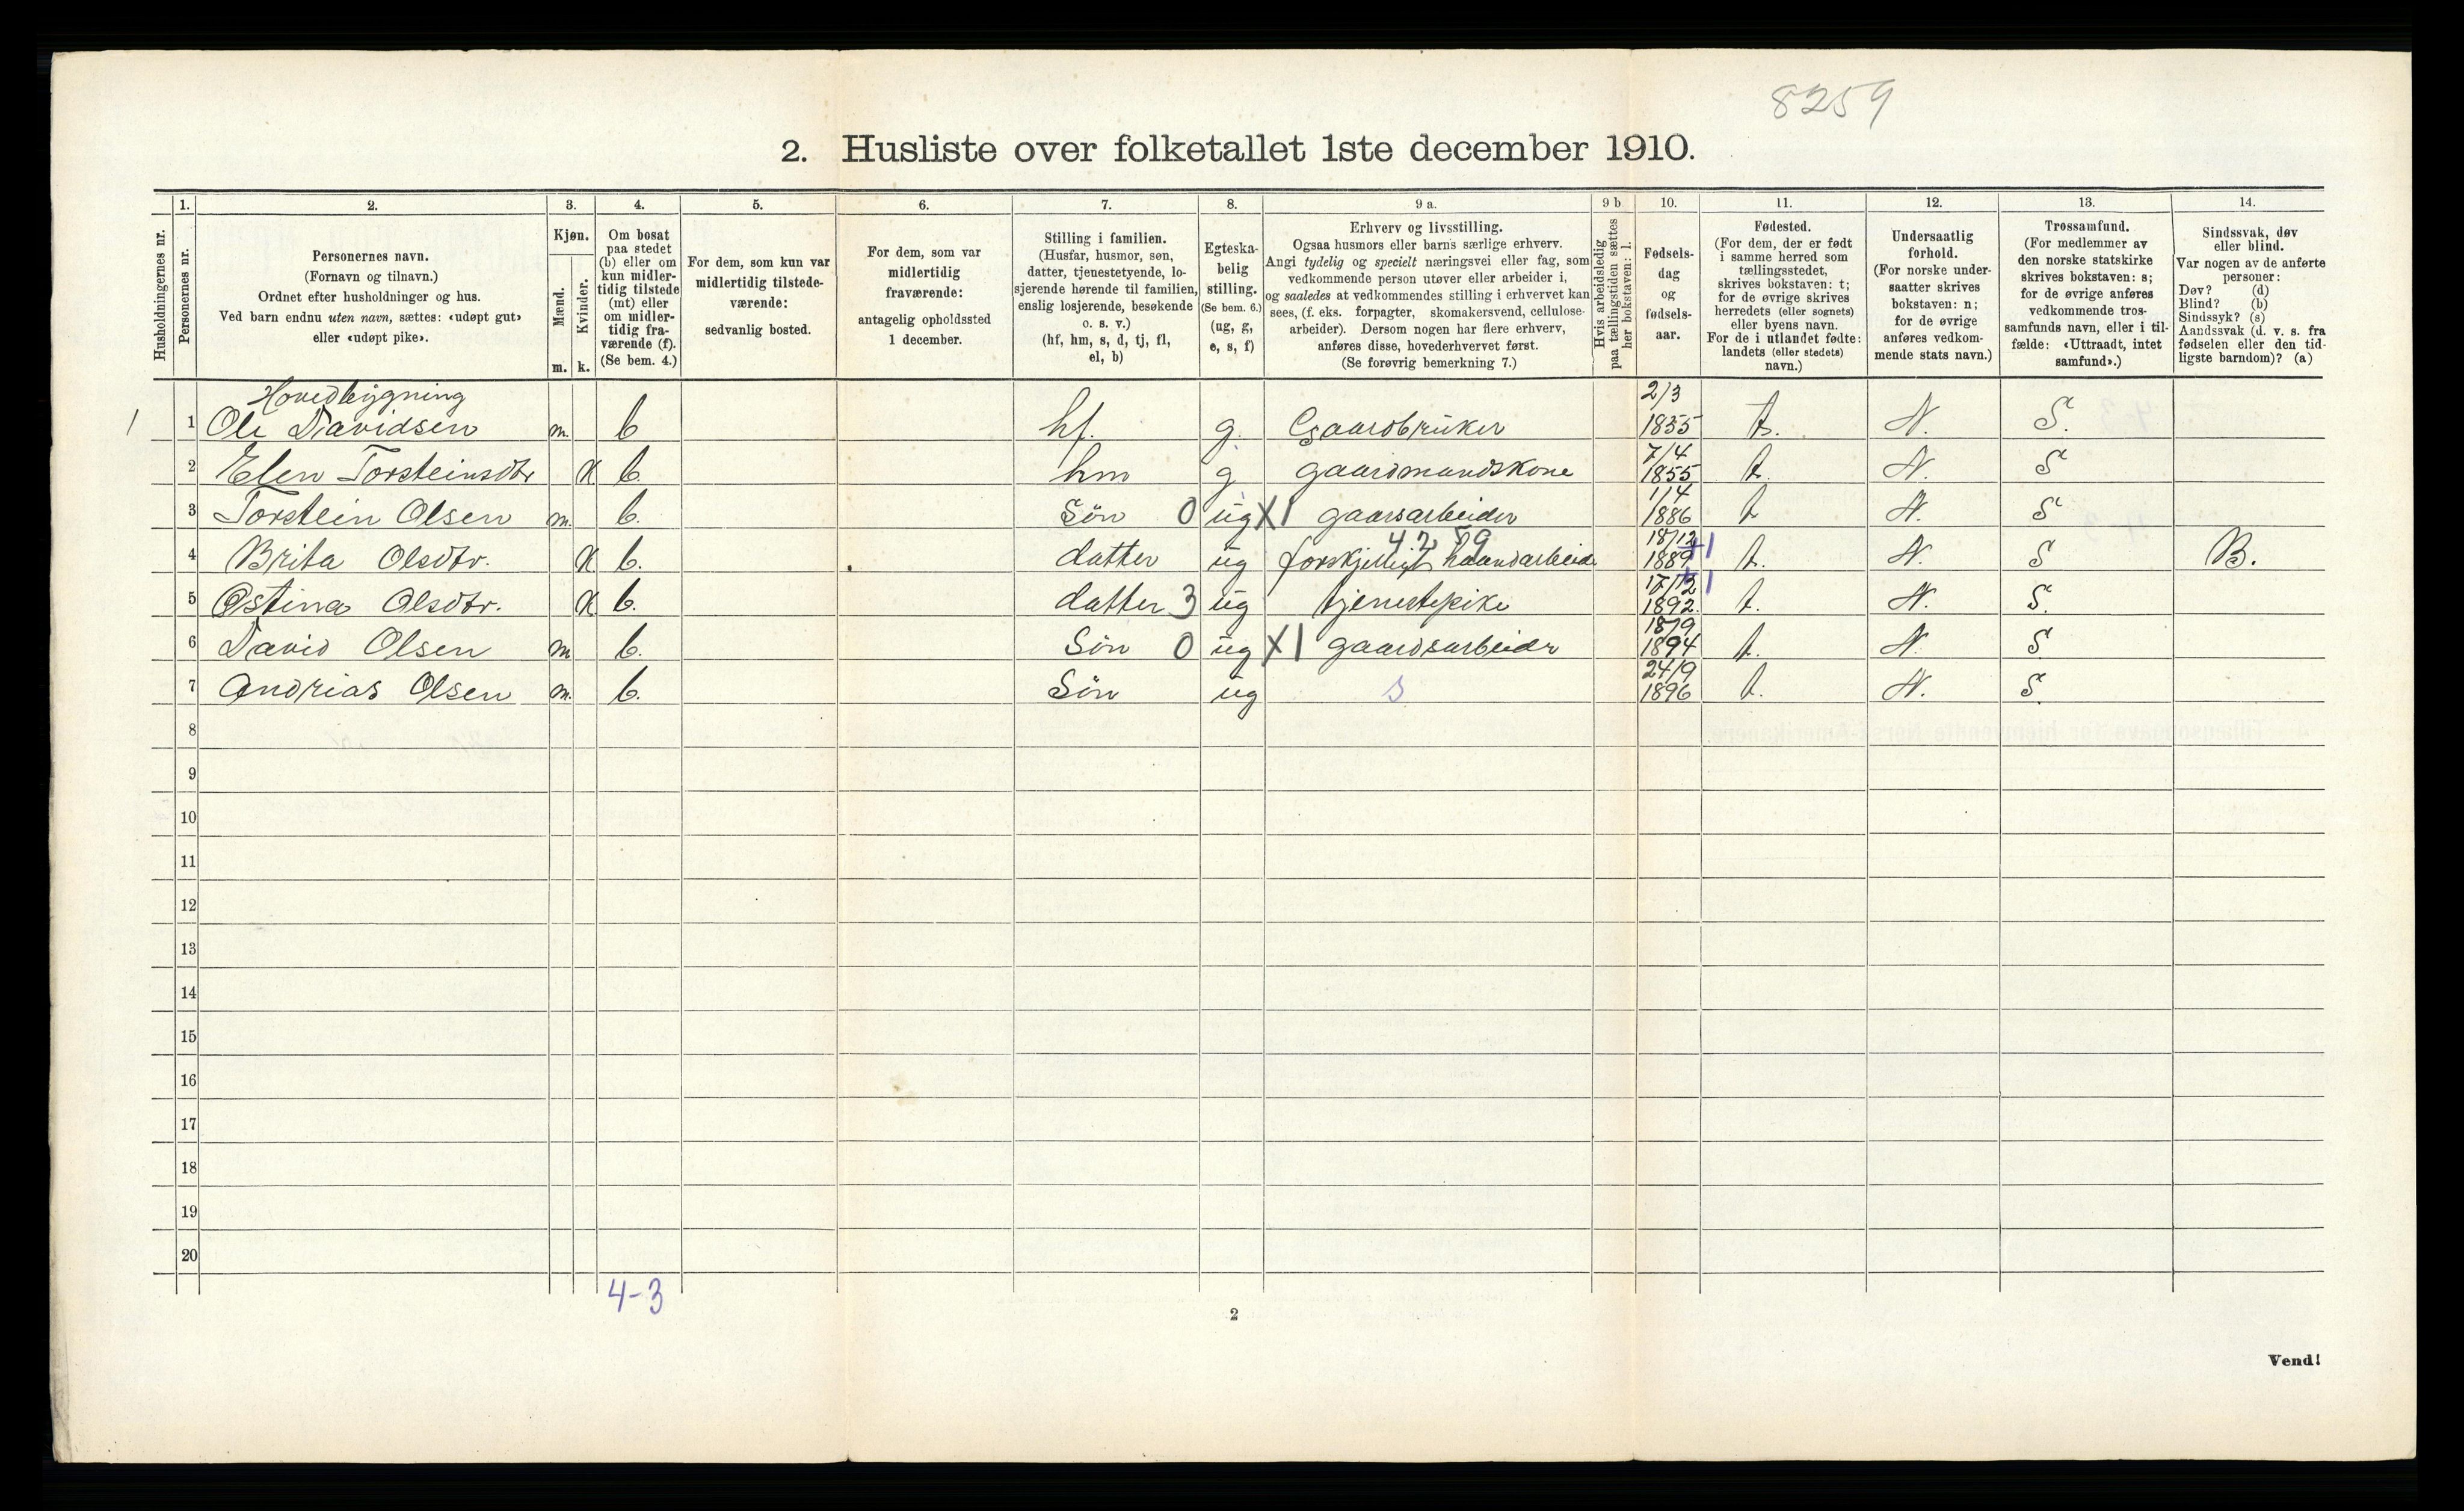 8259
2. Husliste over folketallet 1ste december 1910.
Husholdningernes nr.
1.
Personernes nr.
2.
Personernes navn.
(Fornavn og tilnavn.)
Ordnet efter husholdninger og hus.
Ved barn endnu uten navn, sættes: «udøpt gut»
eller «udøpt pike».
3.
Kjøn.
Mænd.
Kvinder.
m. k.
4.
Om bosat
paa stedet
(b) eller om
kun midler-
tidig tilstede
(mt) eller
om midler-
tidig fra-
værende (f).
(Se bem. 4.)
5.
For dem, som kun var
midlertidig tilstede-
værende:
sedvanlig bosted.
6.
For dem, som var
midlertidig
fraværende:
antagelig opholdssted
1 december.
7.
Stilling i familien.
(Husfar, husmor, søn,
datter, tjenestetyende, lo-
sjerende hørende til familien,
enslig losjerende, besøkende
o. s. v.)
(hf, hm, s, d, tj, fl,
el, b)
8.
Egteska-
belig
stilling.
(Se bem. 6.)
(ug, g,
e, s, f)
9 a.
Erhverv og livsstilling.
Ogsaa husmors eller barns særlige erhverv.
Angi tydelig og specielt næringsvei eller fag, som
vedkommende person utøver eller arbeider i,
og saaledes at vedkommendes stilling i erhvervet kan
sees, (f. eks. forpagter, skomakersvend, cellulose-
arbeider). Dersom nogen har flere erhverv,
anføres disse, hovederhvervet først.
(Se forøvrig bemerkning 7.)
9 b
Hvis arbeidsledig
paa tællingstiden sættes
her bokstaven: l.
10.
Fødsels-
dag
og
fødsels-
aar.
11.
Fødested.
(For dem, der er født
i samme herred som
tællingsstedet,
skrives bokstaven: t;
for de øvrige skrives
herredets (eller sognets)
eller byens navn.
For de i utlandet fødte:
landets (eller stedets)
navn.)
12.
Undersaatlig
forhold.
(For norske under-
saatter skrives
bokstaven: n;
for de øvrige
anføres vedkom-
mende stats navn.)
13.
Trossamfund.
(For medlemmer av
den norske statskirke
skrives bokstaven: s;
for de øvrige anføres
vedkommende tros-
samfunds navn, eller i til-
fælde: «Uttraadt, intet
samfund».)
14.
Sindssvak, døv
eller blind.
Var nogen av de anførte
personer:
Døv? (d)
Blind? (b)
Sindssyk? (s)
Aandssvak (d. v. s. fra
fødselen eller den tid-
ligste barndom)? (a)
Hovedbygning
1 1 Ole Davidsen m. b hf. g. Gaardbruker 2/3 1855 t. N. S.
2 Elen Torsteinsdtr K b. hm g gaardmandskone 7/4 1855 t. N. S
3 Torstein Olsen m. b. Søn 0 ug X1 gaarsarbeider 1/4 1886 t N. S
4 Brita Olsdtr. K b. datter ug forskjelligt haandarbeide 42 59 18/12 1889 +1 t. N. S B.
5 Ostina Olsdtr. K b. datter 3 ug tjenestepike 17/12 1892. +1 t. N. S.
6 David Olsen m b. Søn 0 ug X1 gaardsarbeidr 18/9 1894 t. N. S
7 Andrias Olsen m. b. Søn ug s 24/9 1896 t. N. S.
8
9
10
11
12
13
14
15
16
17
18
19
20
4-3
2
Vend!